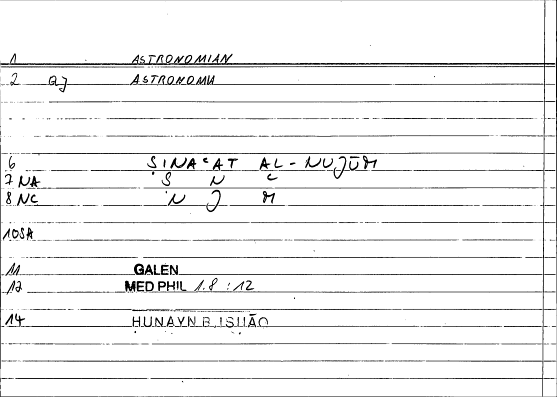 1 ASTRONOMIAN
2 QJ ASTRONOMIA
6 ṢINAʿAT AL-NUJŪM
7 NA Ṣ N ʿ
8 NC N J M
10SA
11 GALEN
12 MED PHIL 1.8 :12
14 HUNAYN B. ISḤĀQ